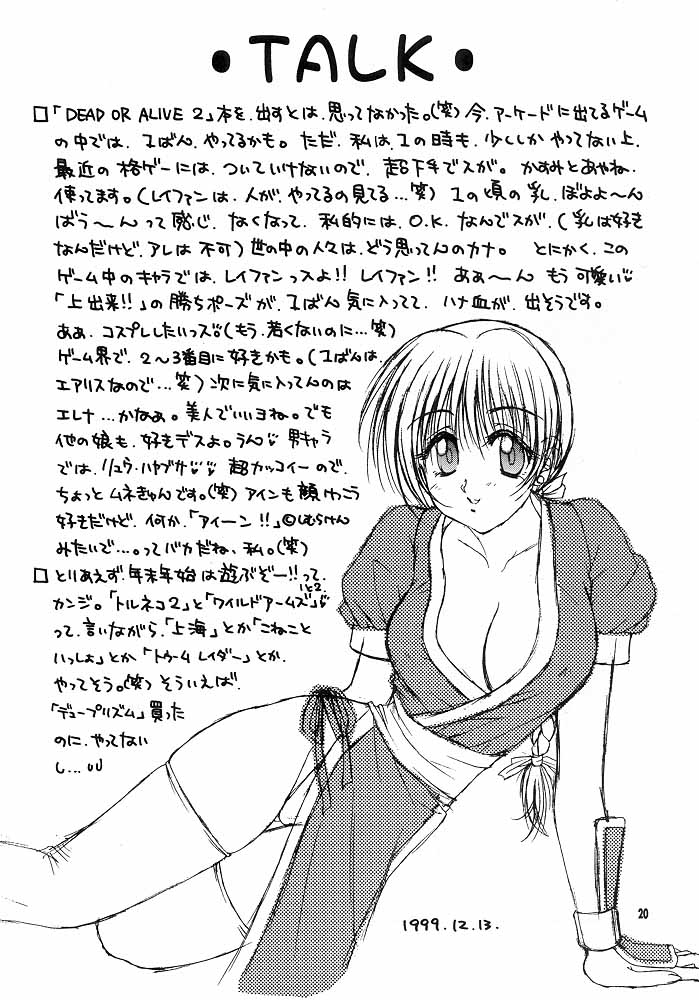 •TALK•
□「DEAD OR ALIVE 2」本を、出すとは、思ってなかった。(笑)今、アーケードに出てるゲーム
の中では、1ばん、やってるかも。ただ、私は、1の時も、少ししか やってない上、
最近の 格ゲーには、ついていけないので、超下手でスが。かすみとあやね、
使ってます。(レイファンは、人が、やってるの見てる…笑) 1の頃の 乳、ぼよよ〜ん
ばう〜んって 感じ、なくなって、私的には、O.K. なんでスが、(乳は好き
なんだけど、アレは 不可) 世の中の人々は、どう思ってんのカナ。 とにかく、この
ゲーム中のキャラでは、レイファンっスよ!! レイファン!! ああ〜ん もう 可愛い
「上出来!!」の 勝ちポーズが、1ばん 気に入ってて、ハナ血が、出そうです。
ああ、コスプレしたいっス。(もう、若くないのに…笑)
ゲーム界で、2〜3番目に好きかも。(1ばんは、
エアリスなので…笑) 次に気に入ってんのは
エレナ…かなぁ。美人でいいヨね。でも
他の娘も、好きデスよ。うん。男キャラ
では、リュウ・ハヤブサ 超カッコイーので、
ちょっと ムネきゅんです。(笑) アインも 顔けっこう
好きだけど、何か、「アイーン!!」©しむらけん
みたいで…。って バカだね、私。(笑)
□とりあえず、年末年始は遊ぶぞー!!って、
カンジ。「トルネコ2」と「ワイルドアームズ 1と2」
って、言いながら、「上海」とか「こねこと
いっしょ」とか「トゥームレイダー」とか、
やってそう。(笑) そういえば、
「デュープリズム」買った
のに、やってない
し…
1999.12.13.
20